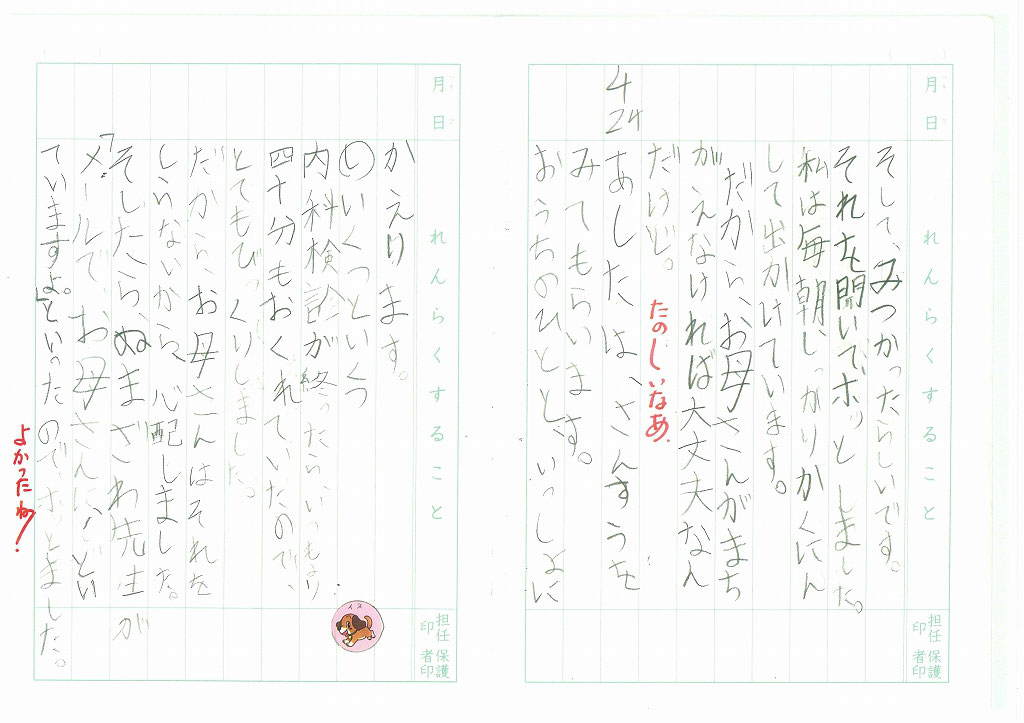 月 日
れんらくすること
担任印
保護者印
そして、みつかったらしいです。
それを聞いてホッとしました。
私は毎朝しっかりかくにん
して出かけています。
だから、お母さんがまち
がえなければ大丈夫なん
だけど。
たのしいなあ。
4 24
あしたは、さんすうを
みてもらいます。
おうちのひとと、いっしょに
月 日
れんらくすること
担任印
保護者印
かえります。
いくっといくつ
内科検診が終ったら、いつもより
四十分もおくれていたので、
とてもびっくりしました。
だから、お母さんはそれを
しらないから、心配しました。
そしたら、ぬまざわ先生が
「メールで、お母さんに、とい
ていますよ。」といったので、ホッとました。
よかったね!
イヌ